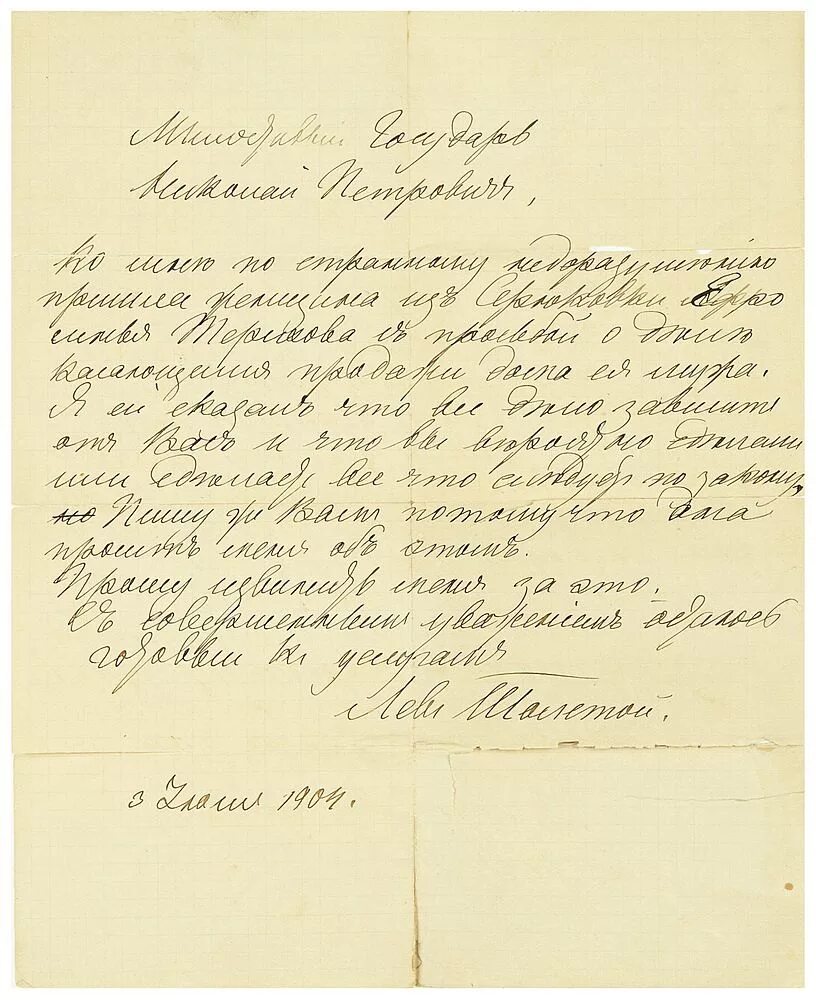 Милостивый Государь
Николай Петровичъ,
Ко мнѣ по странному недоразумѣнію
пришла женщина изъ Сергѣевки Ефро
синья Терехова съ просьбой о дѣлѣ
касающемся продажи дома ея мужа.
Я ей сказалъ что все дѣло зависитъ
отъ Васъ и что вы вѣроятно сдѣлали
или сдѣлаете все что слѣдуетъ по закону,
но Пишу же Вамъ потому что она
проситъ меня объ этомъ.
Прошу извинить меня за это.
Съ совершеннымъ уваженіемъ остаюсь
готовый къ услугамъ
Левъ Толстой.
3 1904.